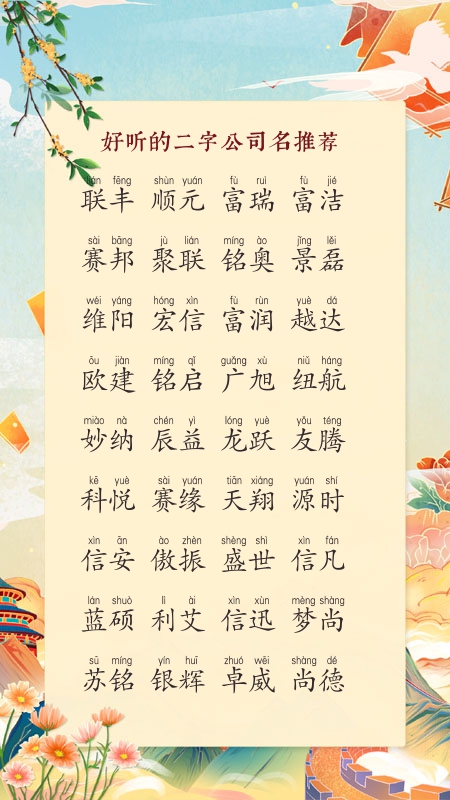 好听的二字公司名推荐
lián fēng shùn yuán fù ruì fù jié
联丰 顺元 富瑞 富洁
sài bāng jù lián míng ào jǐng lěi
赛邦 聚联 铭奥 景磊
wéi yáng hóng xìn fù rùn yuè dá
维阳 宏信 富润 越达
ōu jiàn míng qǐ guǎng xù niǔ háng
欧建 铭启 广旭 纽航
miào nà chén yì lóng yuè yǒu téng
妙纳 辰益 龙跃 友腾
kē yuè sài yuán tiān xiáng yuán shí
科悦 赛缘 天翔 源时
xìn ān ào zhèn shèng shì xìn fán
信安 傲振 盛世 信凡
lán shuò lì ài xìn xùn mèng shàng
蓝硕 利艾 信迅 梦尚
sū míng yín huī zhuó wēi shàng dé
苏铭 银辉 卓威 尚德